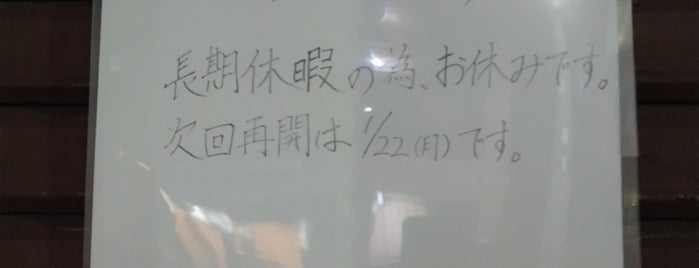 長期休暇の為、お休みです。
次回再開は1/22(月)です。